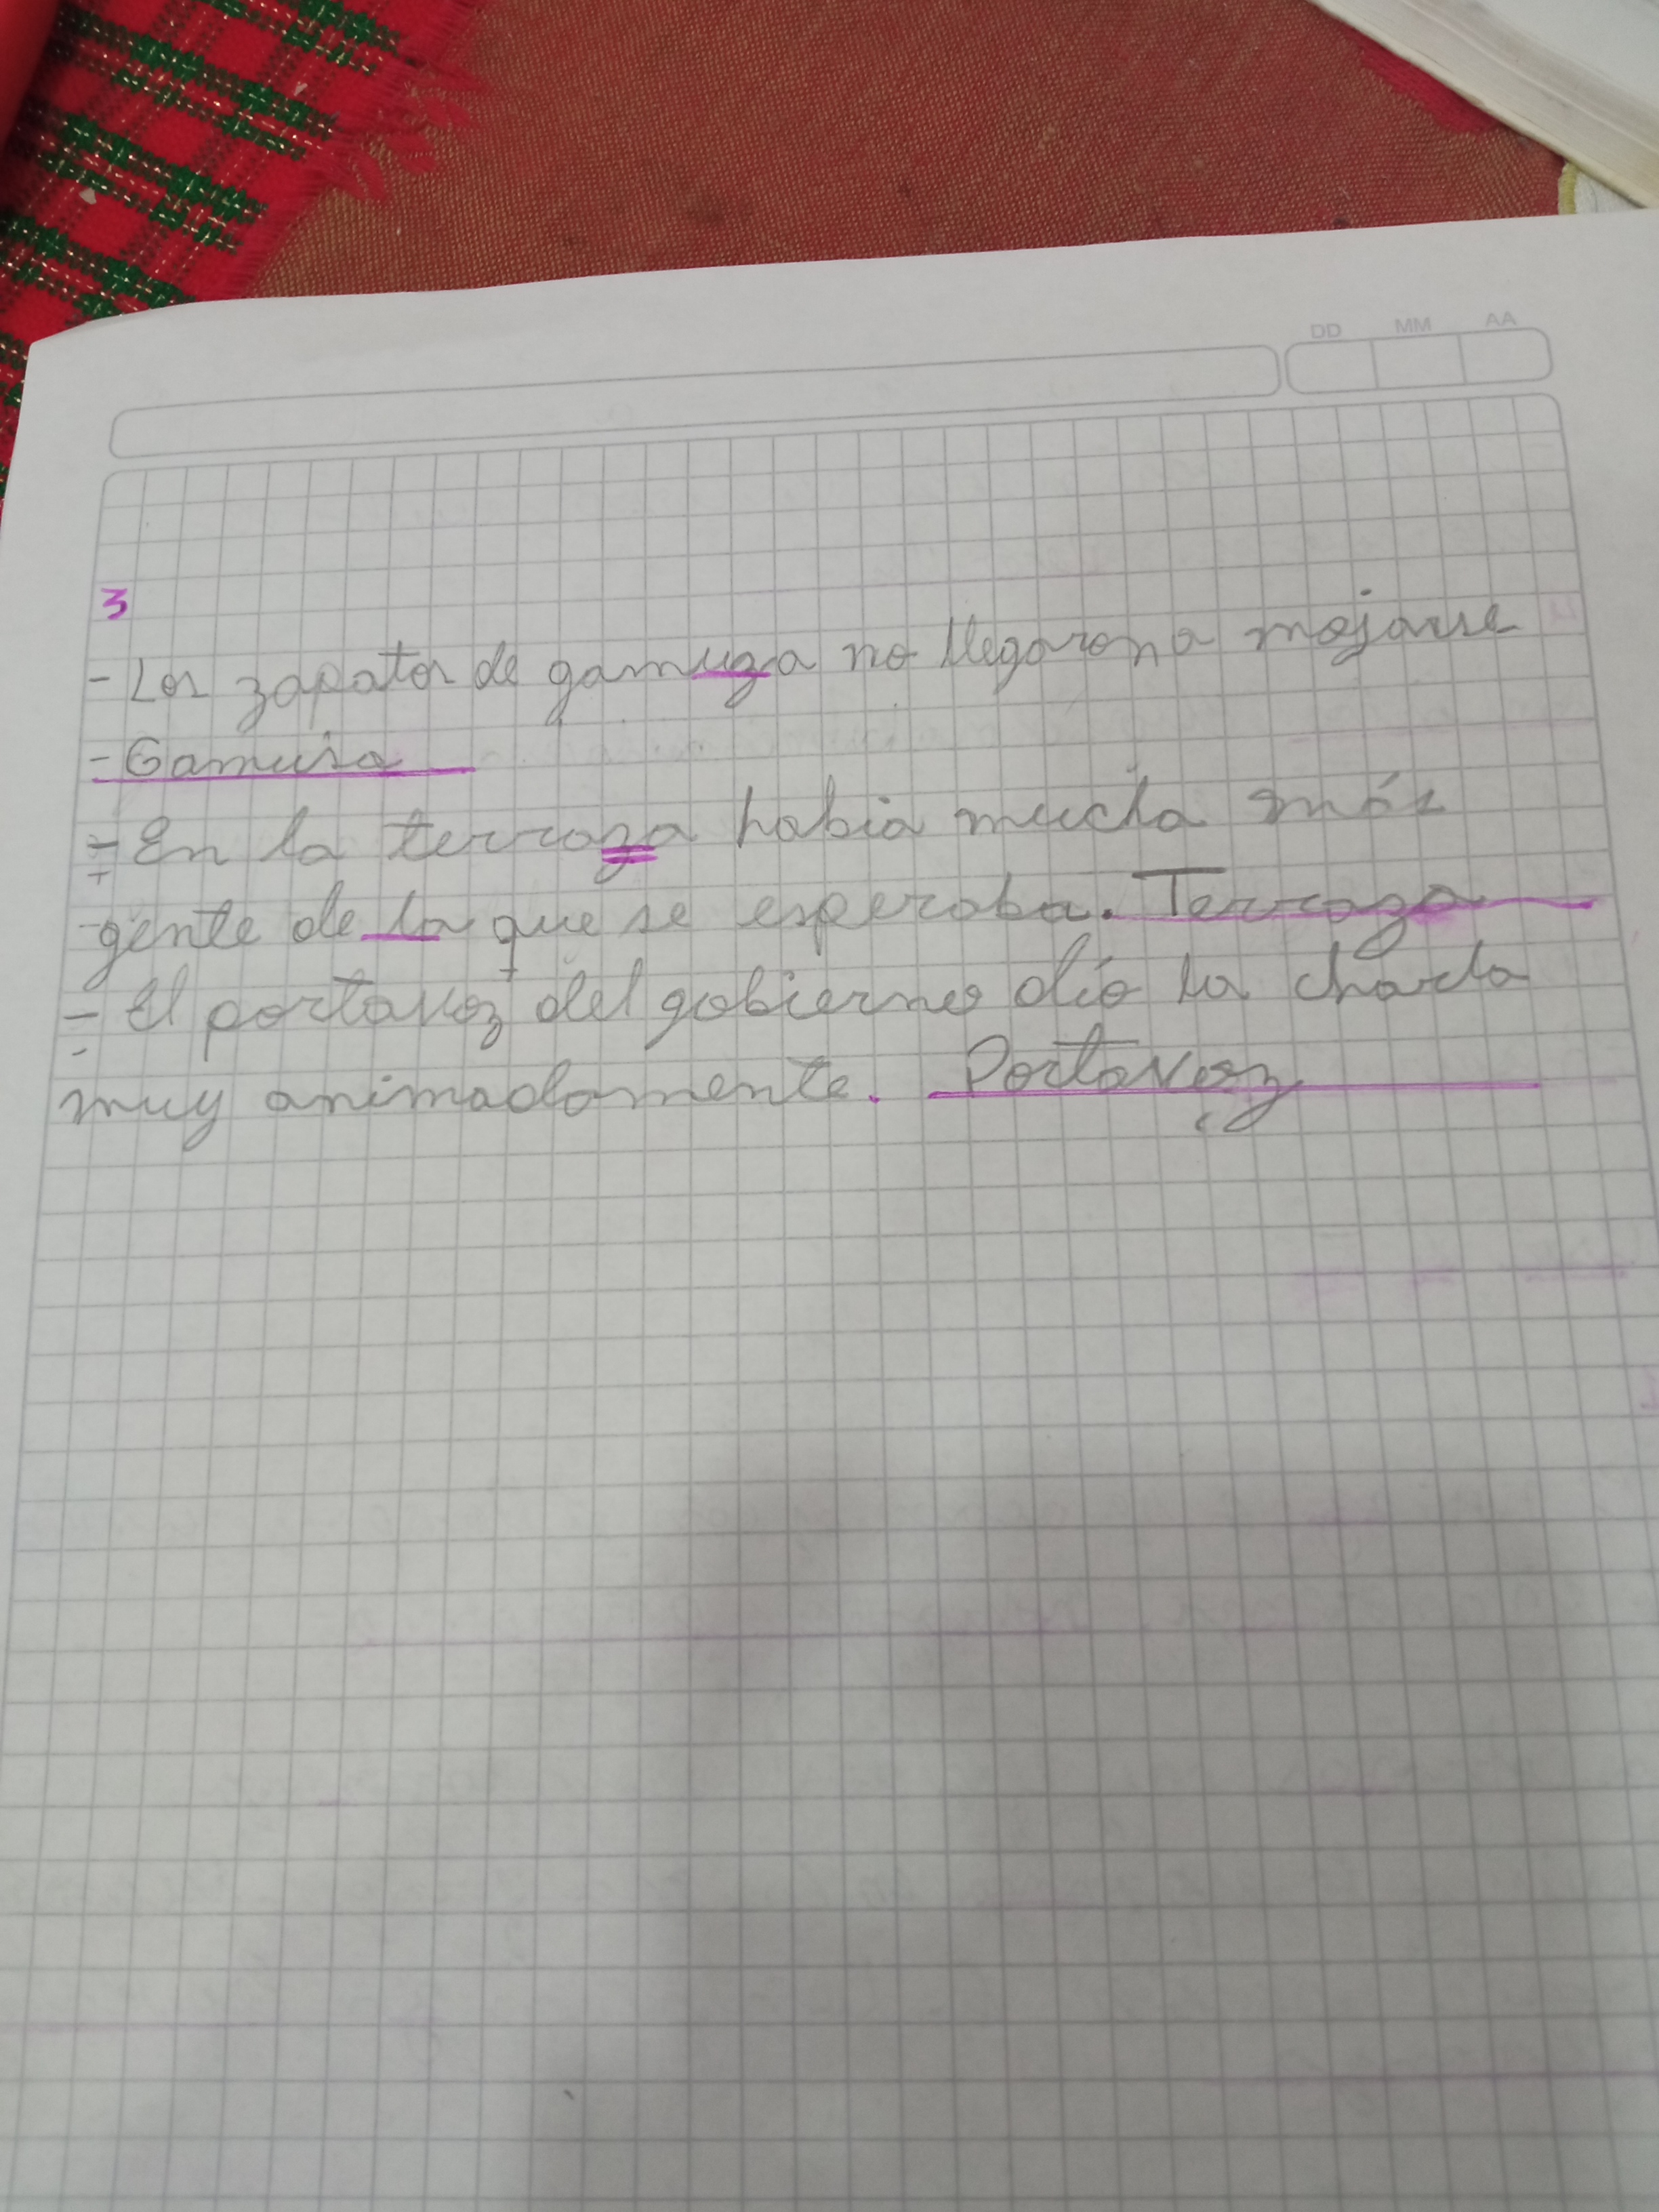 DD MM AA
3
- Los zapatos de gamuza no llegaron a mojarse
- Gamusa
- En la terraza habia mucha más
gente de la que se esperaba. Terraza
- El portavoz del gobierno dío la charla
muy animadamente. Portavoz